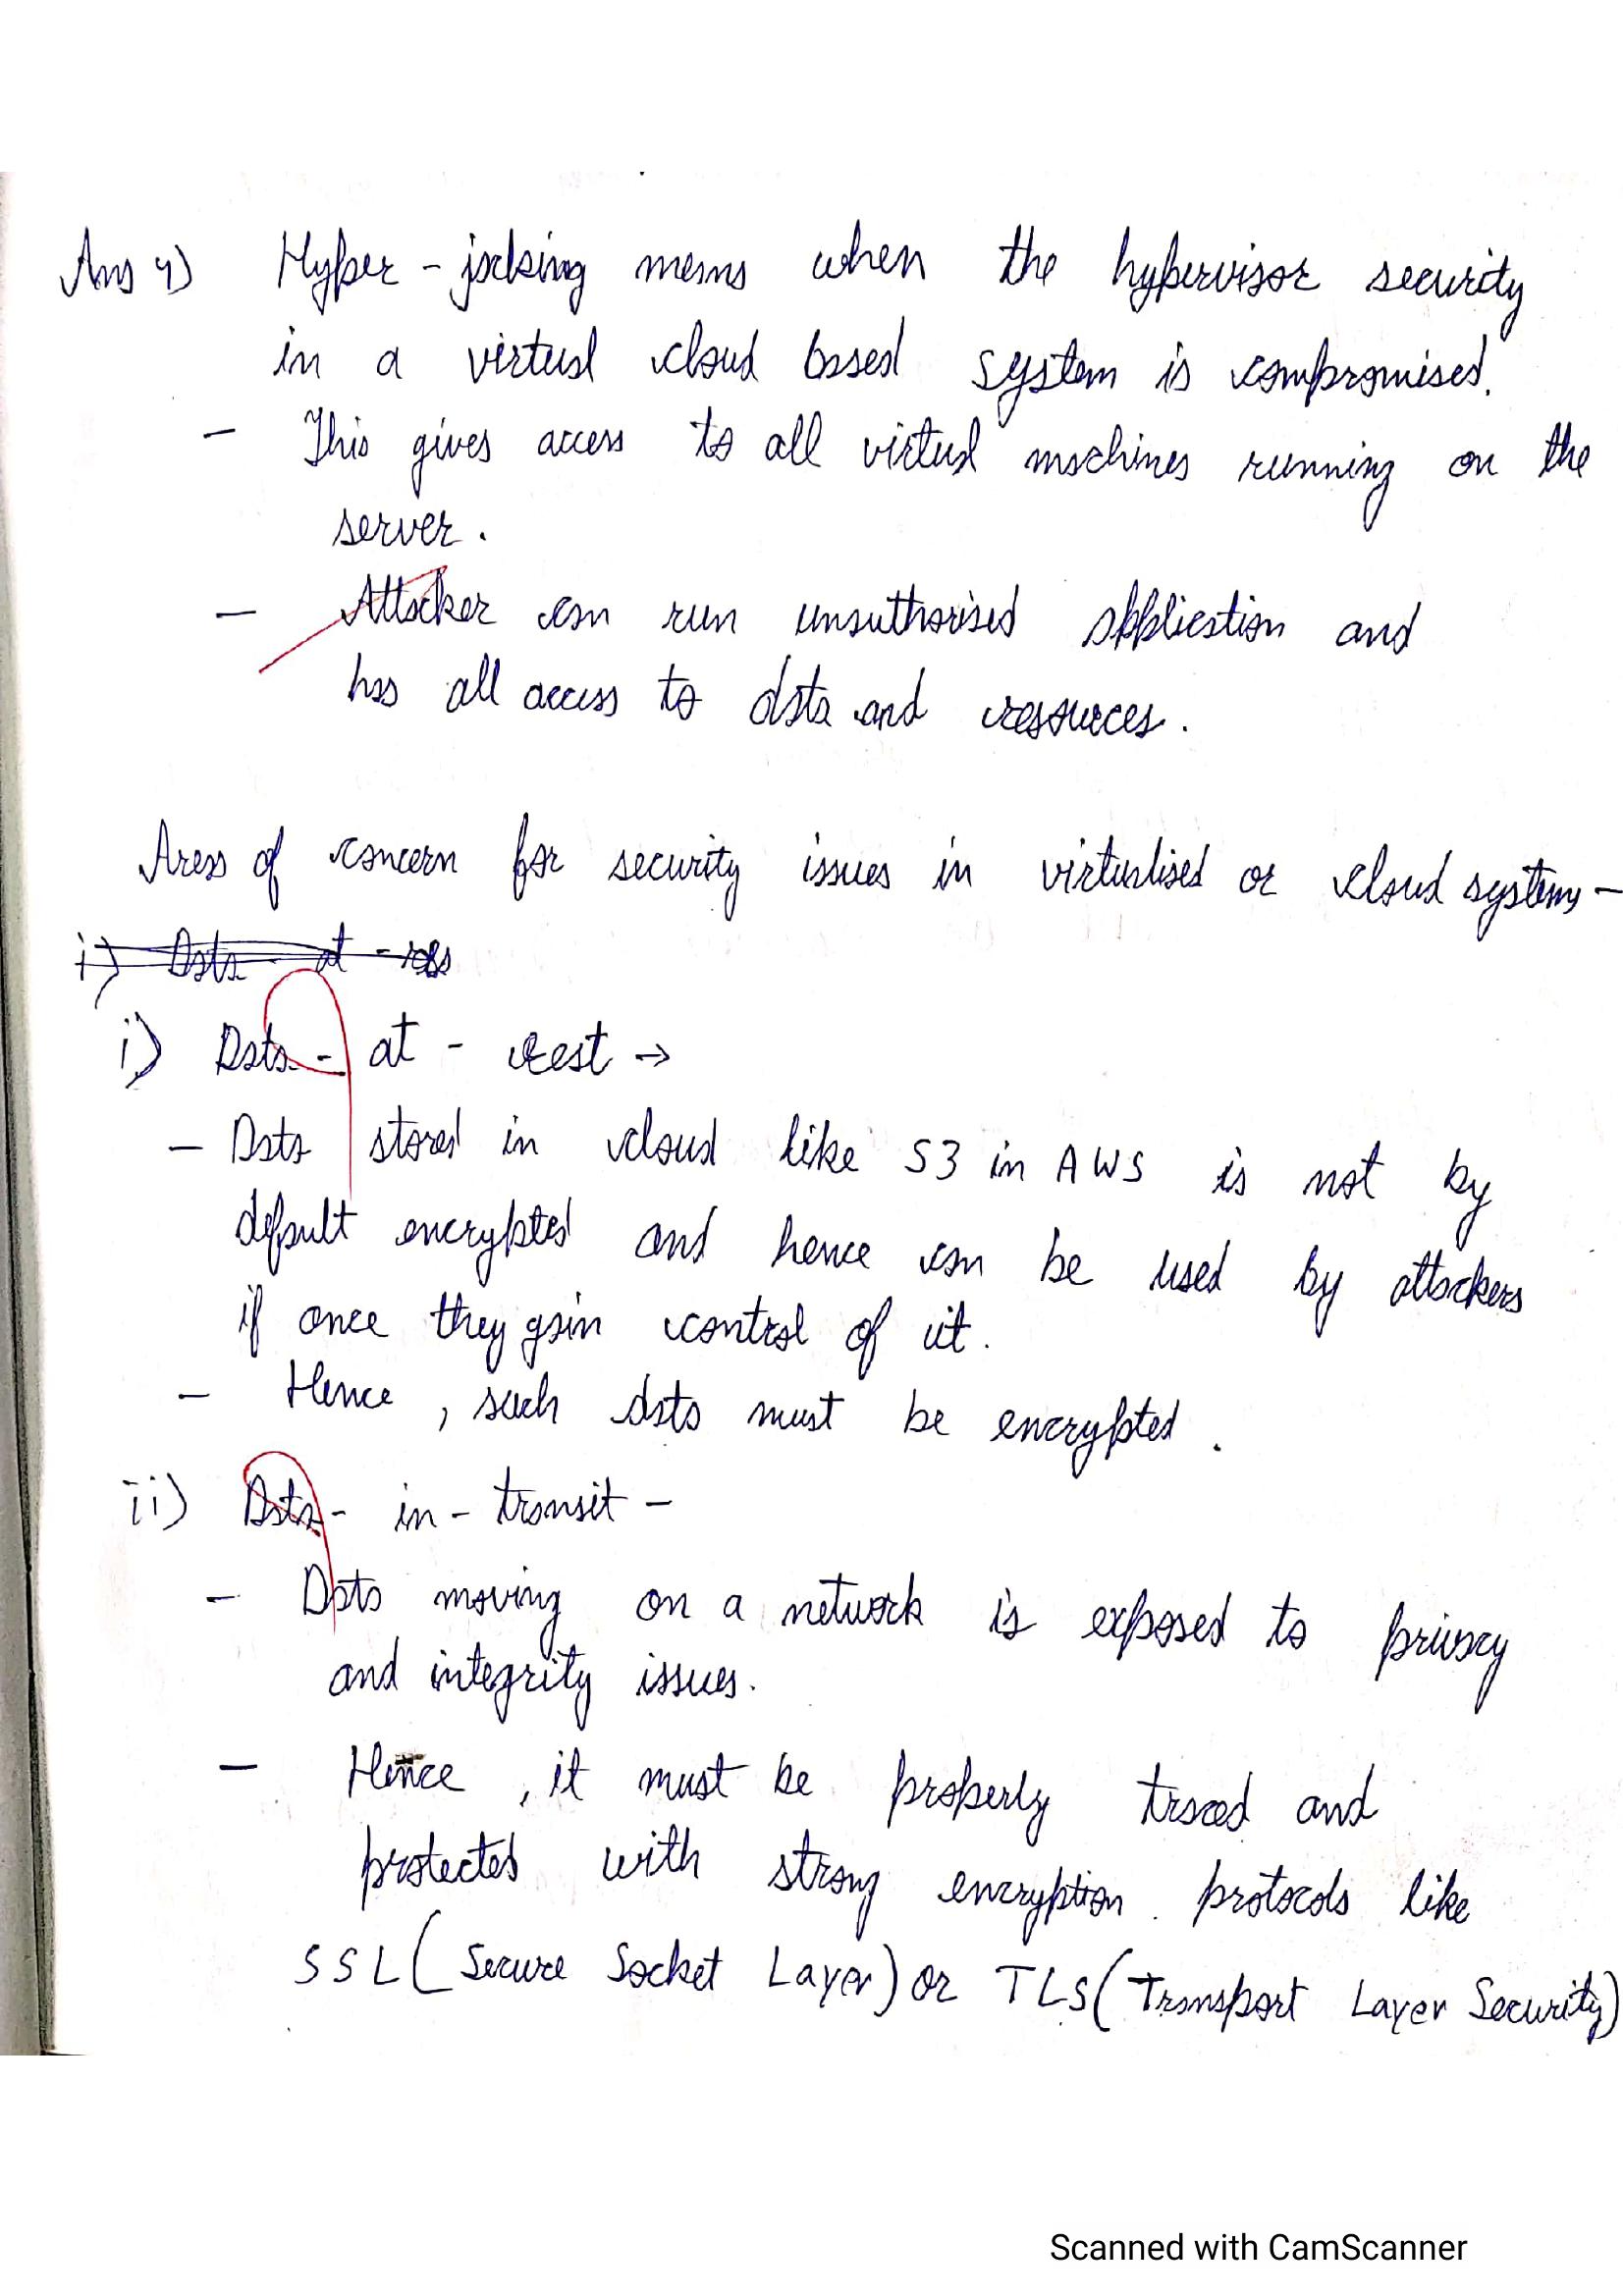 Ans 4) Hyper-jacking means when the hypervisor security
in a virtual cloud based system is compromised.
- This gives access to all virtual machines running on the
server.
- Attacker can run unauthorised application and
has all access to data and resources.
Areas of concern for security issues in virtualised or cloud systems -
i) Data - at - res
i) Data - at - rest →
- Data stored in cloud like S3 in AWS is not by
default encrypted and hence can be used by attackers
if once they gain control of it.
- Hence, such data must be encrypted.
ii) Data - in - transit -
- Data moving on a network is exposed to privacy
and integrity issues.
- Hence, it must be properly traced and
protected with strong encryption protocols like
SSL (Secure Socket Layer) or TLS (Transport Layer Security)
Scanned with CamScanner